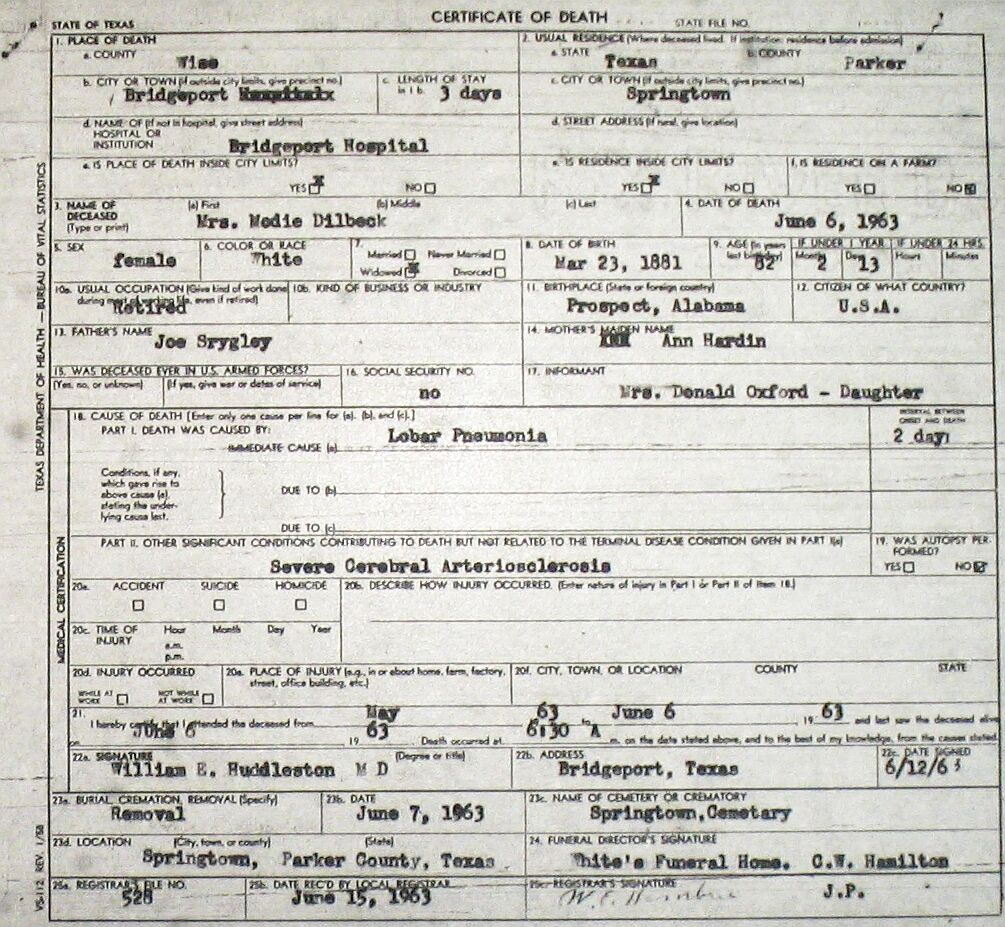 CERTIFICATE OF DEATH
STATE OF TEXAS STATE FILE NO.
1. PLACE OF DEATH
a. COUNTY
Wise
2. USUAL RESIDENCE (Where deceased lived. If institution: residence before admission)
a. STATE
Texas
b. COUNTY
Parker
b. CITY OR TOWN (If outside city limits, give precinct no.)
Bridgeport
c. LENGTH OF STAY
in 1 b.
3 days
c. CITY OR TOWN (If outside city limits, give precinct no.)
Springtown
d. NAME OF (If not in hospital, give street address)
HOSPITAL OR
INSTITUTION
Bridgeport Hospital
d. STREET ADDRESS (If rural, give location)
e. IS PLACE OF DEATH INSIDE CITY LIMITS?
YES X NO
e. IS RESIDENCE INSIDE CITY LIMITS?
YES X NO
f. IS RESIDENCE ON A FARM?
YES NO X
3. NAME OF
DECEASED
(Type or print)
(a) First (b) Middle (c) Last
Mrs. Modie Dilbeck
4. DATE OF DEATH
June 6, 1963
5. SEX
female
6. COLOR OR RACE
White
7.
Married Never Married
Widowed X Divorced
8. DATE OF BIRTH
Mar 23, 1881
9. AGE (In years
last birthday)
82
IF UNDER 1 YEAR
Months 2 Days 13
IF UNDER 24 HRS.
Hours Minutes
10a. USUAL OCCUPATION (Give kind of work done
during most of working life, even if retired)
Retired
10b. KIND OF BUSINESS OR INDUSTRY
11. BIRTHPLACE (State or foreign country)
Prospect, Alabama
12. CITIZEN OF WHAT COUNTRY?
U.S.A.
13. FATHER'S NAME
Joe Srygley
14. MOTHER'S MAIDEN NAME
Ann Hardin
15. WAS DECEASED EVER IN U.S. ARMED FORCES?
(Yes, no, or unknown) (If yes, give war or dates of service)
16. SOCIAL SECURITY NO.
no
17. INFORMANT
Mrs. Donald Oxford - Daughter
18. CAUSE OF DEATH [Enter only one cause per line for (a), (b), and (c).]
PART I. DEATH WAS CAUSED BY:
IMMEDIATE CAUSE (a)
Lobar Pneumonia
INTERVAL BETWEEN
ONSET AND DEATH
2 day
Conditions, if any,
which gave rise to
above cause (a),
stating the under-
lying cause last.
DUE TO (b)
DUE TO (c)
PART II. OTHER SIGNIFICANT CONDITIONS CONTRIBUTING TO DEATH BUT NOT RELATED TO THE TERMINAL DISEASE CONDITION GIVEN IN PART I(a)
Severe Cerebral Arteriosclerosis
19. WAS AUTOPSY PER-
FORMED?
YES NO
20a. ACCIDENT SUICIDE HOMICIDE
20b. DESCRIBE HOW INJURY OCCURRED. (Enter nature of injury in Part I or Part II of Item 18.)
20c. TIME OF
INJURY
Hour Month Day Year
a.m.
p.m.
20d. INJURY OCCURRED
WHILE AT
WORK
NOT WHILE
AT WORK
20e. PLACE OF INJURY (e.g., in or about home, farm, factory,
street, office building, etc.)
20f. CITY, TOWN, OR LOCATION COUNTY STATE
21.
I hereby certify that I attended the deceased from May 63 to June 6 19 63 and last saw the deceased alive
on June 6 19 63 Death occurred at 6:30 A m. on the date stated above, and to the best of my knowledge, from the causes stated.
22a. SIGNATURE (Degree or title)
William E. Huddleston M D
22b. ADDRESS
Bridgeport, Texas
22c. DATE SIGNED
6/12/63
23a. BURIAL, CREMATION, REMOVAL (Specify)
Removal
23b. DATE
June 7, 1963
23c. NAME OF CEMETERY OR CREMATORY
Springtown,Cemetary
23d. LOCATION (City, town, or county) (State)
Springtown, Parker County, Texas
24. FUNERAL DIRECTOR'S SIGNATURE
White's Funeral Home. C.W. Hamilton
25a. REGISTRAR'S FILE NO.
528
25b. DATE REC'D BY LOCAL REGISTRAR
June 15, 1963
25c. REGISTRAR'S SIGNATURE
J.P.
TEXAS DEPARTMENT OF HEALTH — BUREAU OF VITAL STATISTICS
MEDICAL CERTIFICATION
VS-112 REV. 1/58